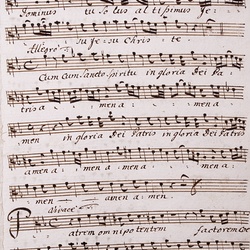 Dominus tu solus altissimus Je:
su Je: su Chris: te
Allegro
Cum cum sancto spiritu in gloria dei Pa:
tris a men a: men a:
men in gloria dei Patris in gloria dei Patris
a men a: men a men a: men
men a men a: men.
Vivace
Patrem omnipotentem factorem